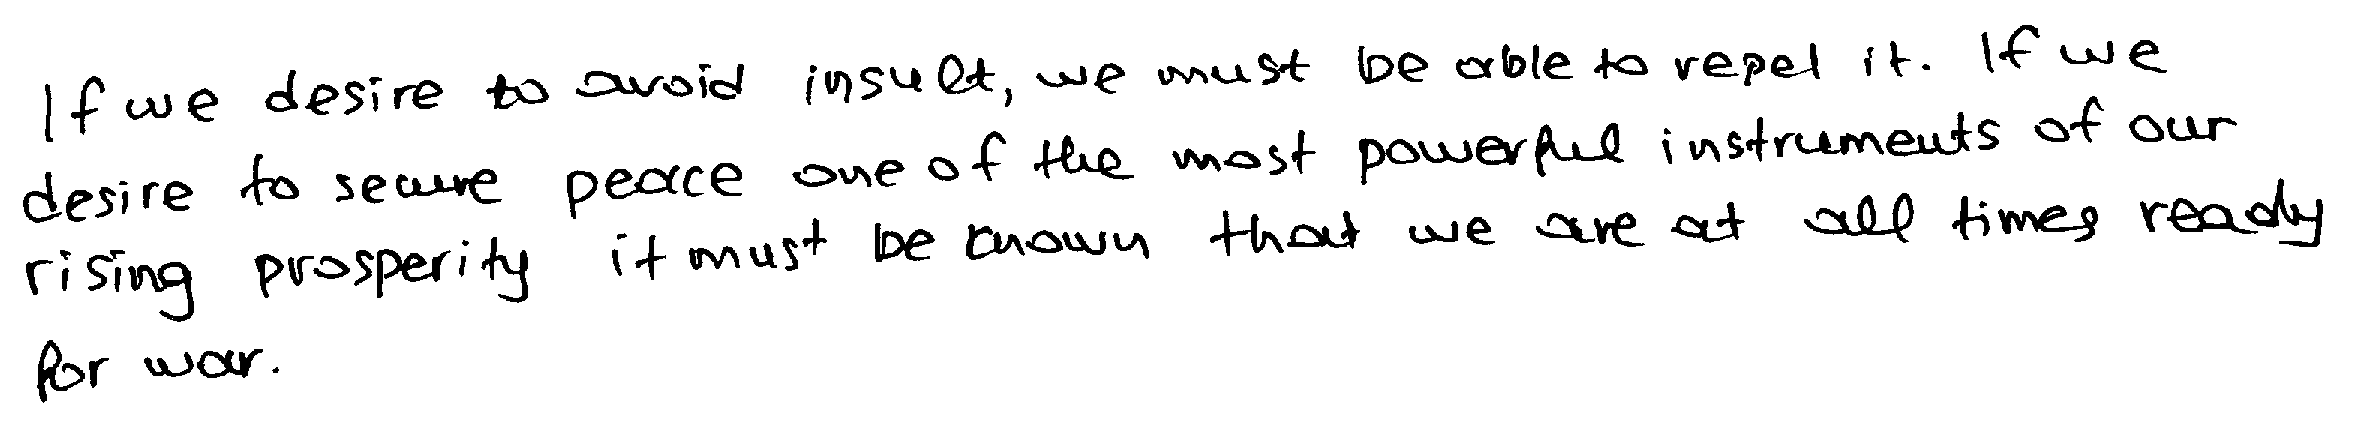 If we desire to avoid insult, we must be able to repel it. If we
desire to secure peace one of the most powerful instruments of our
rising prosperity it must be known that we are at all times ready
for war.